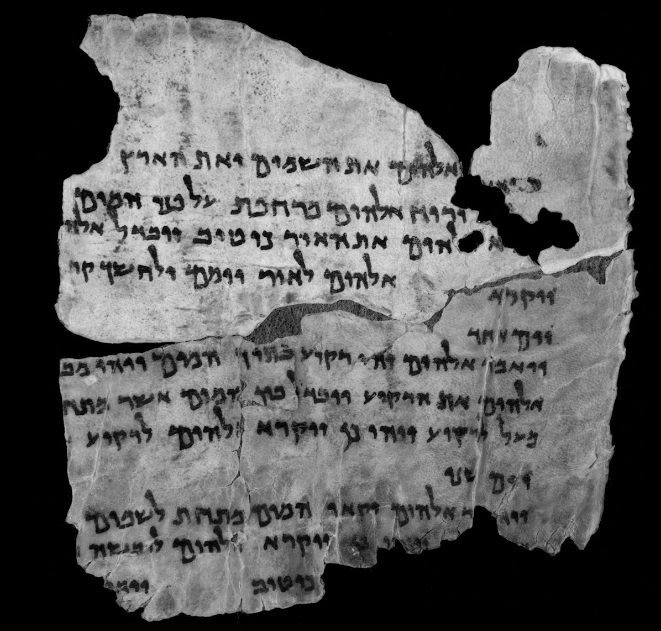 אלהים את השמים ואת הארץ
ורוח אלהים מרחפת על פני המים
הים את האור כי טוב ויבדל אלהי
ויקרא אלהים לאור יומם ולחשך קר
יום אחד
ויאמר אלהים יהי רקיע בתוך המים ויהי מב
אלהים את הרקיע ויבדל בין המים אשר מתח
מעל לרקיע ויהי כן ויקרא אלהים לרקיע
יום שני
אלהים יקאו המים מתחת לשמים
ויקרא אלהים ליבשה
כי טוב ויאמ